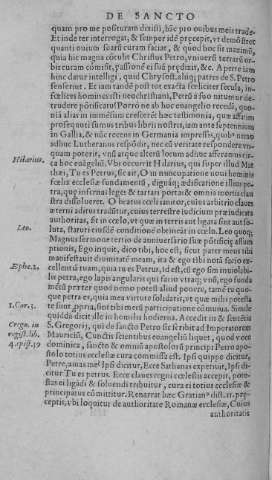 DE SANCTO
quam pro me posituram detissi, hęc pro ouibus meis trade.
Et inde ter interrogat, & semper idē præcepit, vt demōstret
quanti ouium suarū curam faciat, & quod hoc sit maximū,
quia hic magna cœtus Christus Petro, vniuersū terrarū or-
bis curam cōmisit, passiōnē ei suā prędicit, &c. A Petro iam
hinc datur intelligi, quid Chrysost. aliiq; patres de S. Petro
senserint. Et iam tandē post tot exacta
fideles homines isti neochristiani, Petrū à suo
trudere pōtificatu? Porrò ne ab hoc euangelio recedā, quo-
niā alias in immēsum cresceret hæc testimonia, quæ
proseq uti sumus tribus libris nostris, iam ante septennium
in Gallia, & nūc recens in Germania impressis, quibꝰ nemo
adhuc Lutheranus respōdit, nec ei veritate respondere vn-
quam poterit, vnū atque alterū locum adhuc afferam
ca hæc euangelica. Vbi occurrit Hilarius, qui super illud Mat-
thæi, Tu es Petrus, sic ait, O in nuncupatione noui hominis
fœlix ecclesiæ fundamentū, dignāq; ædificatione illius pe-
tra, quę infernas leges & tartari portas & omnia mortis clau
stra dissolueret. O beatus cœli ianitor, cuius arbitrio claues
æterni aditus traditur, cuius terrestre iudiciū præiudicata
authoritas, sit in cœlo, vt quæ in terris aut ligata sint aut so-
luta, statuti eiusdē conditione obtineāt in cœlo. Leo quoq;
Magnus sermone tertio de anniuersario suæ
prionis, Ego inquit, dico tibi, hoc est, sicut pater meus tibi
manifestauit diuinitatē meam, ita & ego tibi notā facio ex-
cellentiā tuam, quia tu es Petrus, id est, cū ego sim inuiolabi-
lis petra, ego lapis angularis qui facio vtraq; vnū, ego funda
mentū præter quod nemo potest aliud ponere, tamē tu quo-
que petra es, quia mea virtute solidaris, vt quæ mihi potesta
te sunt ꝓpria, sint tibi mecū participatione cōmunia. Simile
quiddā dicit ille in homilia hodierna. Accedit in & sanctus
S. Gregorij, qui de sancto Petro sic scribit ad Imperatorem
Mauriciū, Cunctis scientibus euangeliū liquet, quod voce
dominica, sancto & omniū apostolorū principi Petro apo-
stolo totius ecclesiæ cura commissa est. Ipsi quippe dicitur,
Petre, amas me? Ipsi dicitur, Ecce Sathanas expetiuit, Ipsi di-
citur Tu es petrus. Ecce claues regni cœlestis accepit, pote-
stas ei ligādi & soluendi tribuitur, cura ei totius ecclesiæ &
principatus cōmittitur. Renarrat hæc Gratianꝰ dist.
ceptis, vbi loquitur de authoritate Romanæ ecclesiæ, Cuius
authoritatis
Hilarius.
Leo.
Ephe.2.
1.Cor.3.
Grego. in
regist.lib.
4.epist.32